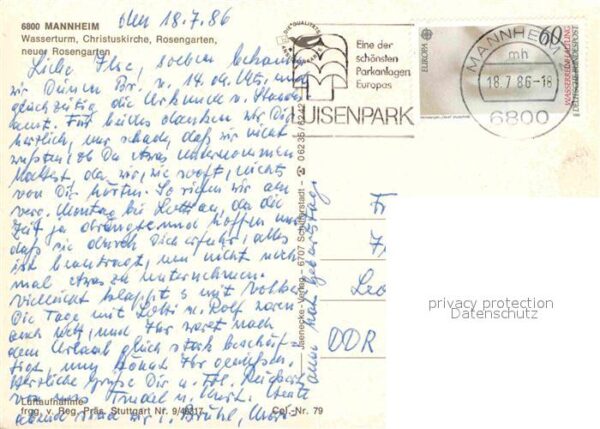 6800 MANNHEIM
Wasserturm, Christuskirche, Rosengarten,
neuer Rosengarten
den 18.7.86
Liebe Ilse, soeben bekamen
wir Deinen Br. v. 14. da. Uns,
gleichzeitig die Urkunde v. Standes
amt. Für beides danken wir Dir
herzlich, nur schade, daß wir nicht
wußten, ob Du etwas unternommen
hattest, da wir, wie sooft, nichts
von Dir hörten. So riefen wir am
verg. Montag bei Lotti an, da die
Zeit ja drängte und hoffen nur
daß sie durch Dich erfuhr, alles
ist beantragt, um nicht noch
mal etwas zu unternehmen.
Vielleicht klappt's mit
Die Tage mit Lotti u. Rolf waren
auch nett, und Ihr waret nach
dem Urlaub gleich stark beschäf-
tigt, nun könnt Ihr genießen.
Herzliche Grüße Dir u.
von uns Trudel u. Kurt. Heute
abend sind wir i. Brühl,
Luftaufnahme
frgg. v. Reg. Präs. Stuttgart Nr. 9/46317
Col.-Nr. 79
Jaenecke-Verlag – 6707 Schifferstadt – ☎ 06235/6242
Eine der
schönsten
Parkanlagen
Europas
LUISENPARK
MANNHEIM
mh
18.7.86-18
6800
EUROPA
60
WASSERREINHALTUNG
DEUTSCHE BUNDESPOST
Fr
Leo
DDR
privacy protection
Datenschutz